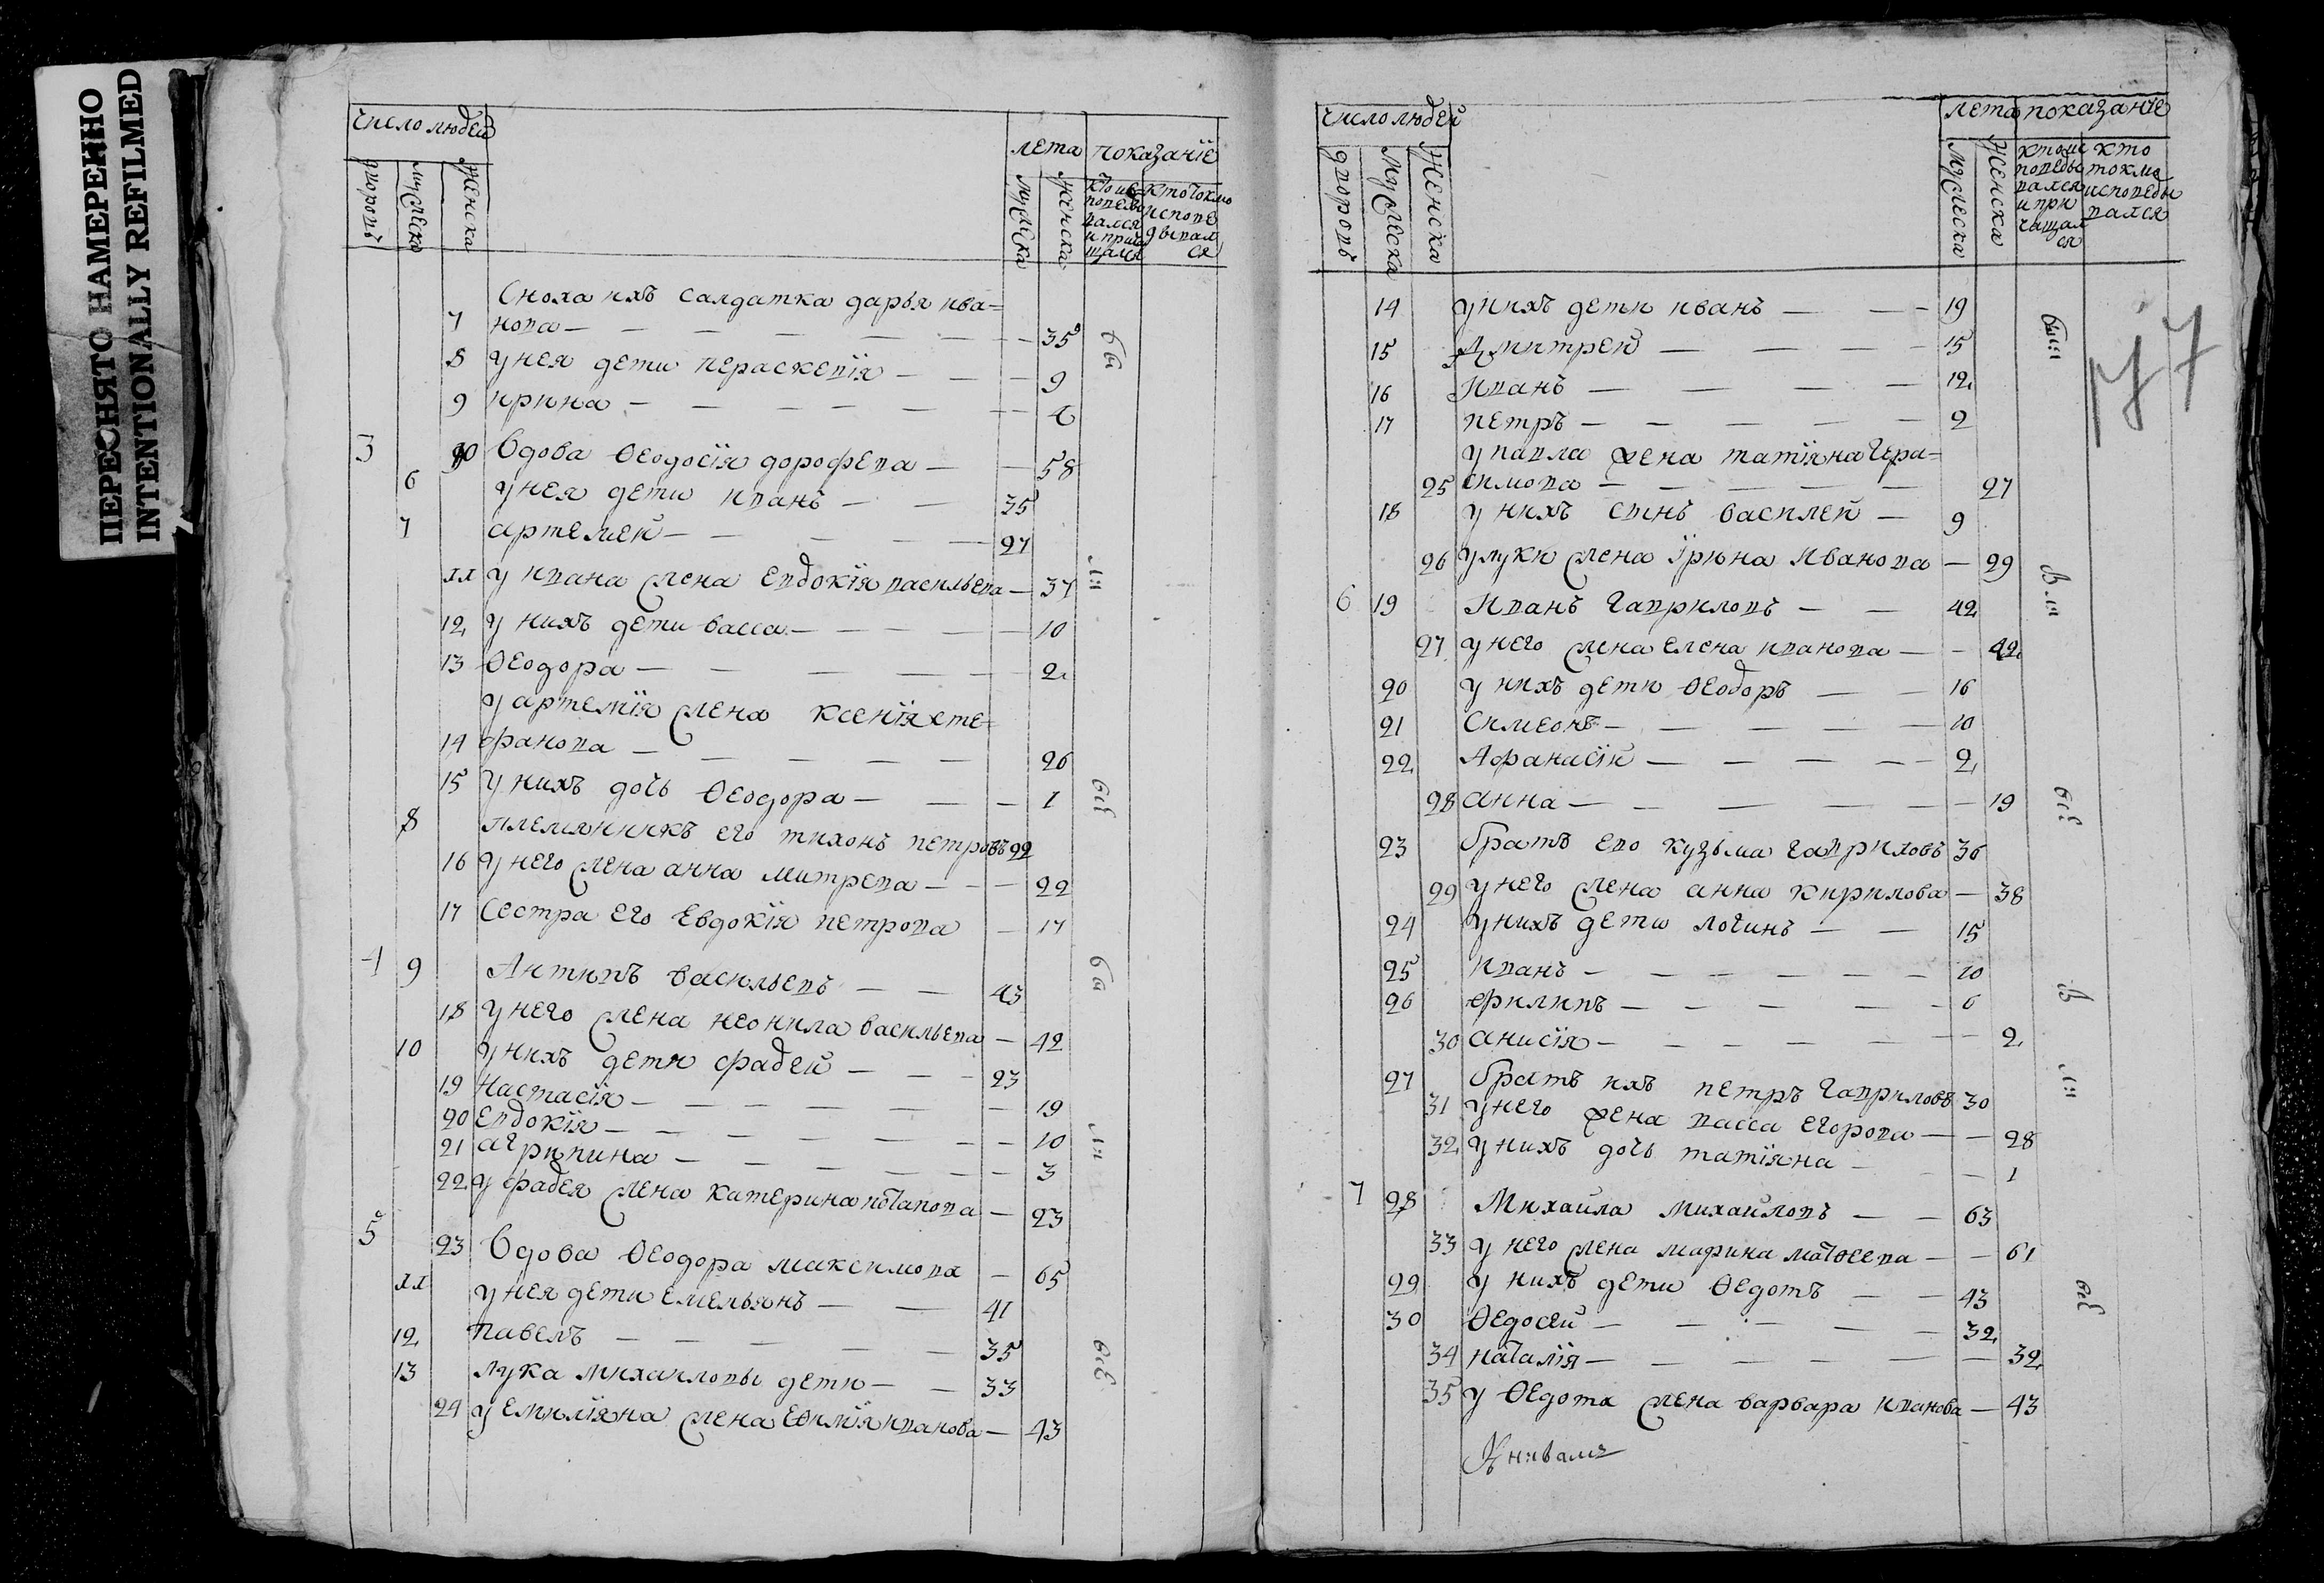 ПЕРЕСНЯТО НАМЕРЕННО
INTENTIONALLY REFILMED
число людей
лета показанїе
дворовъ мужеска женска
мужеска женска
кто исповедывался и причащался
кто токмо исповедывался
Сноха ихъ салдатка дарья ива=
7 нова — 35
8 у нея дети параскевїя — 9
9 ирина —
3 10 Вдова Ѳеодосїя дорофева — 58
6 у нея дети иванъ — 35
7 артемей — 27
11 у ивана жена евдокїя васильева — 37
12 у нихъ дети васса — 10
13 Ѳеодора — 2
у артемїя жена ксенїя сте=
14 фанова — 26
15 у нихъ дочь Ѳеодора — 1
8 племянникъ его тихонъ петровъ 22
16 у него жена анна митрева — 22
17 Сестра его Евдокїя петрова — 17
4 9 Антипъ васильевъ — 43
18 у него жена неонила васильева — 42
10 у нихъ дети фадей — 23
19 Настасїя — 19
20 Евдокїя — 10
21 агрипина — 3
22 у фадея жена катерина потапова — 23
5 23 Вдова Ѳеодора максимова — 65
11 у нея дети емельянъ — 41
12 павелъ — 35
13 лука михаиловы дети — 33
24 у емилїяна жена Еѳимїя иванова — 43
были
все
были
все
число людей
лета показанїе
дворовъ мужеска женска
мужеска женска
кто исповедывался и причащался
кто токмо исповедывался
14 у нихъ дети иванъ — 19
15 Дмитрей — 15
16 Иванъ — 12
17 петръ — 2
у павла жена татїяна гера=
25 симова — 27
18 у нихъ сынъ василей — 9
26 у луки жена Ирина Иванова — 29
6 19 Иванъ гавриловъ — 42
27 у него жена елена иванова — 42
20 у нихъ дети Ѳеодоръ — 16
21 Симеонъ — 10
22 Афанасїй — 2
28 анна — 19
23 братъ его кузьма гавриловъ 36
29 у него жена анна кирилова — 38
24 у нихъ дети логинъ — 15
25 иванъ — 10
26 филипъ — 6
30 анисїя — 2
27 братъ ихъ петръ гавриловъ 30
31 у него жена васса егорова — 28
32 у нихъ дочь татїяна — 1
7 28 Михаила михайловъ — 63
33 у него жена марина матѳеева — 61
29 у нихъ дети Ѳедотъ — 43
30 Ѳедосей — 32
34 наталїя — 32
35 у Ѳедота жена варвара иванова — 43
были
все
были
все